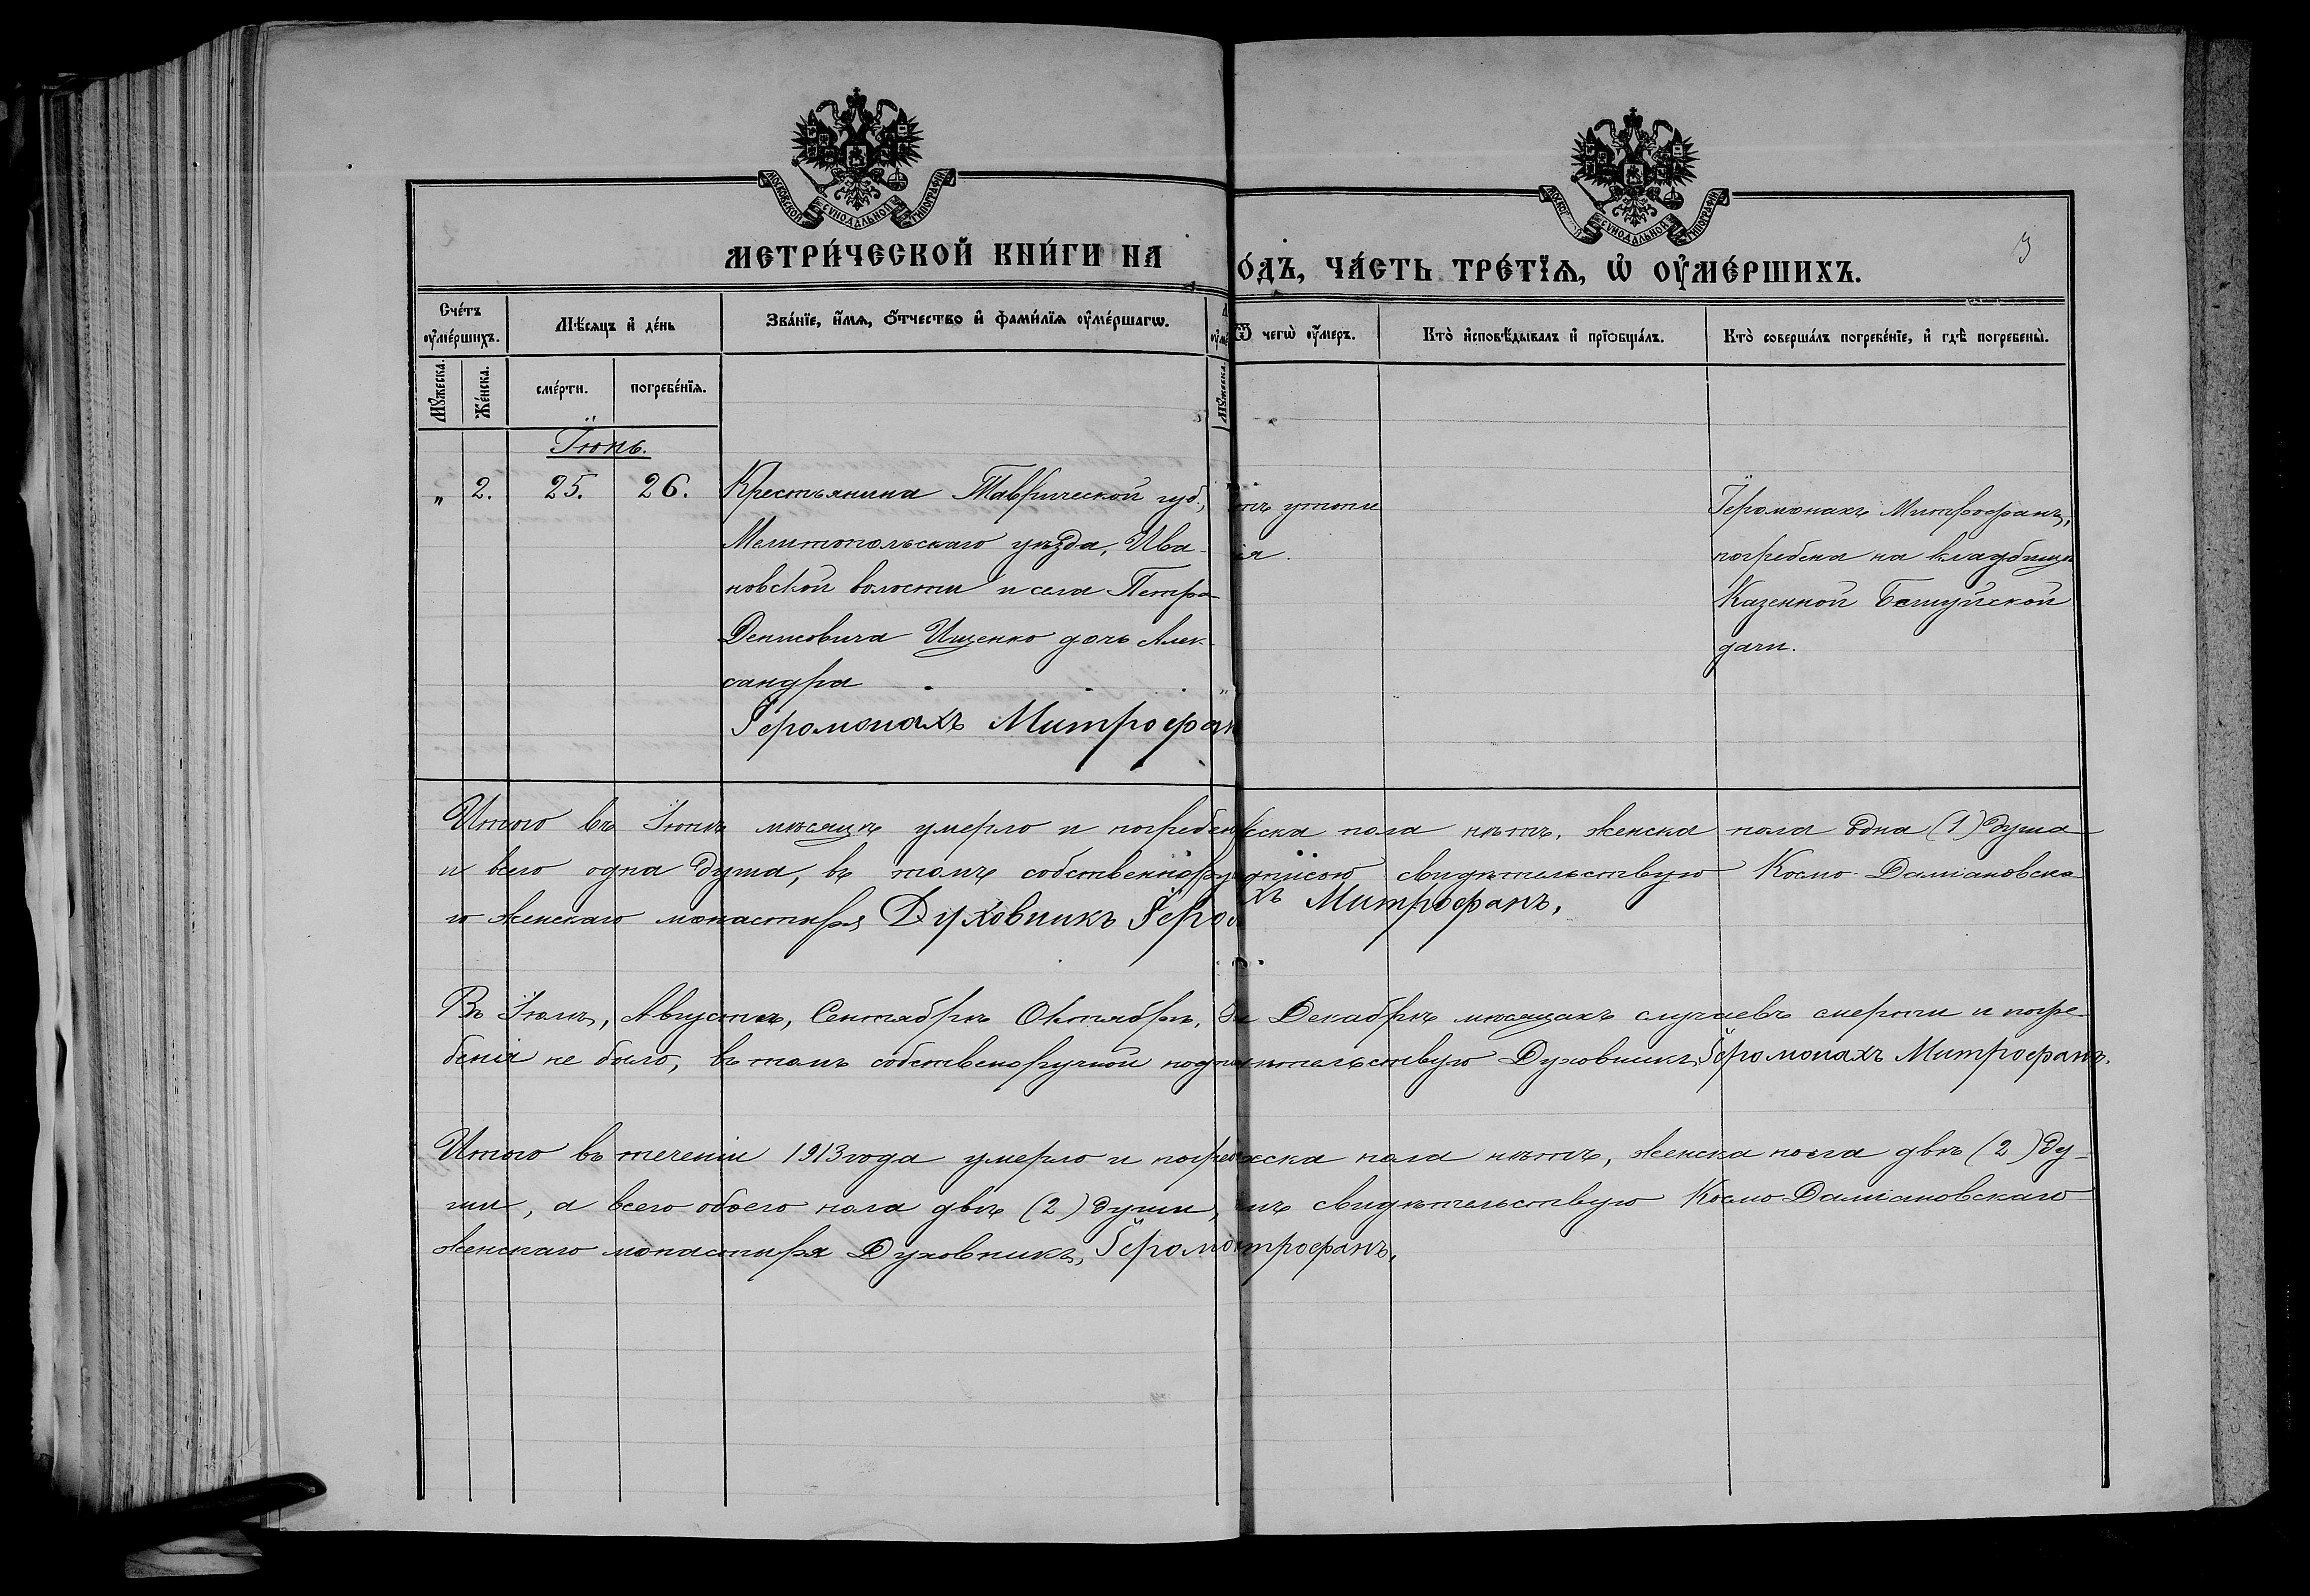 МОСКОВСКОЙ СѴНОДАЛЬНОЙ ТИПОГРАФІИ
МОСКО СѴНОДАЛЬНОЙ ТИПОГРАФІИ
МЕТРИ́ЧЕСКОЙ КНИ́ГИ НА О́ДЪ, ЧА́СТЬ ТРЕ́ТЇѦ, Ѡ҆ ОУ҆МЕ́РШИХЪ.
3
Сче́тъ оу҆ме́ршихъ.
Мѣ́сѧцъ и҆ де́нь
Зва́нїе, и҆́мѧ, ѻ҆́тчество и҆ фами́лїѧ оу҆ме́ршагѡ.
Ѿ чегѡ̀ оу҆́меръ.
Кто̀ и҆сповѣ́дывалъ и҆ прїѡбща́лъ.
Кто̀ соверша́лъ погребе́нїе, и҆ гдѣ̀ погребены̀.
Мꙋ́жеска.
Же́нска.
сме́рти.
погребе́нїѧ.
Мꙋ́жеска.
Іюнь.
„ 2. 25. 26. Крестьянина Таврической губ.,
Мелитопольскаго уѣзда, Ива-
новской волости и села Петра
Денисовича Ищенко дочь Алек-
сандра
Іеромонахъ Митрофан
утопле
ія.
Іеромонахъ Митрофанъ,
погребена на кладбищѣ
Казенной Бешуйской
дачи.
Итого въ Іюнѣ мѣсяцѣ умерло и погребен жеска пола нѣтъ, женска пола одна (1) душа
и всего одна душа, въ томъ собственнору дписью свидѣтельствую Космо-Даміановска-
го женскаго монастыря Духовникъ Іеромо хъ Митрофанъ,
Въ Іюлѣ, Августѣ, Сентябрѣ Октябрѣ, Декабрѣ мѣсяцахъ случаевъ смерти и погре-
бенія не было, въ томъ собственоручной подпи ѣтельствую Духовникъ Іеромонахъ Митрофанъ.
Итого въ теченіи 1913 года умерло и погреб жеска пола нѣтъ, женска пола двѣ (2) ду-
ши, а всего обоего пола двѣ (2) души, мъ свидѣтельствую Космо-Даміановскаго
женскаго монастыря Духовникъ, Іеромо трофанъ,